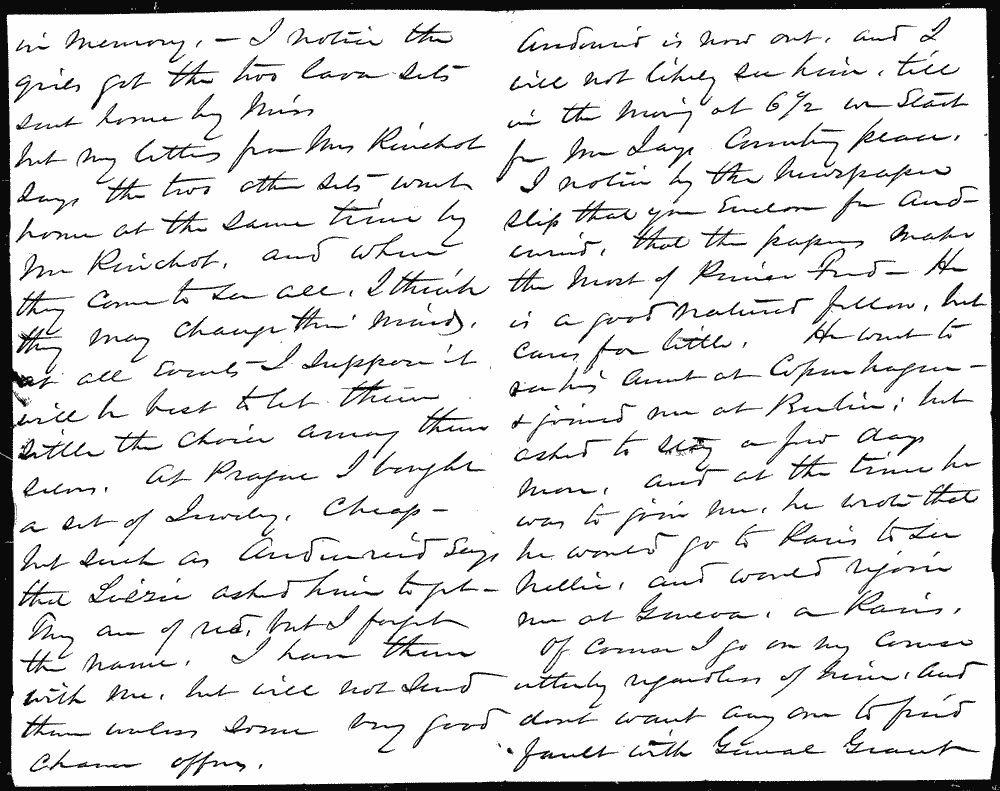 in memory. — I notice the
girls got the two lava sets
sent home by Miss
but my letter from Mrs Pinchot
says the two other sets went
home at the same time by
Mr Pinchot, and when
they come to see all, I think
they may change their minds.
at all Events I suppose it
will be best to let them
settle the choice among them
selves. At Prague I bought
a set of Jewelry. Cheap —
but such as Audenreid says
that Lizzie asked him to get —
They are of red, but I forget
the name. I have them
with me, but will not send
them unless some very good
chance offers.
Audenrid is now out, and I
will not likely see him, till
in the morning at 6 1/2 we start
for Mr Jays Country place.
I notice by the Newspaper
slip that you Enclose for Aud-
enrid, that the papers make
the most of Prince Fred — He
is a good natured fellow, but
cares for little. He went to
see his Aunt at Copenhagen —
& joined me at Berlin; but
asked to stay a few days
more, and at the time he
was to join me, he wrote that
he would go to Paris to see
Nellie, and would rejoin
me at Geneva, or Paris.
Of course I go on my course
utterly regardless of him, and
dont want any one to find
fault with General Grant